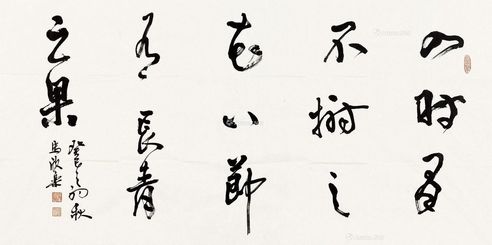 四時有
不謝之
花八節
有長青
之果
癸巳之初秋
馬欣樂